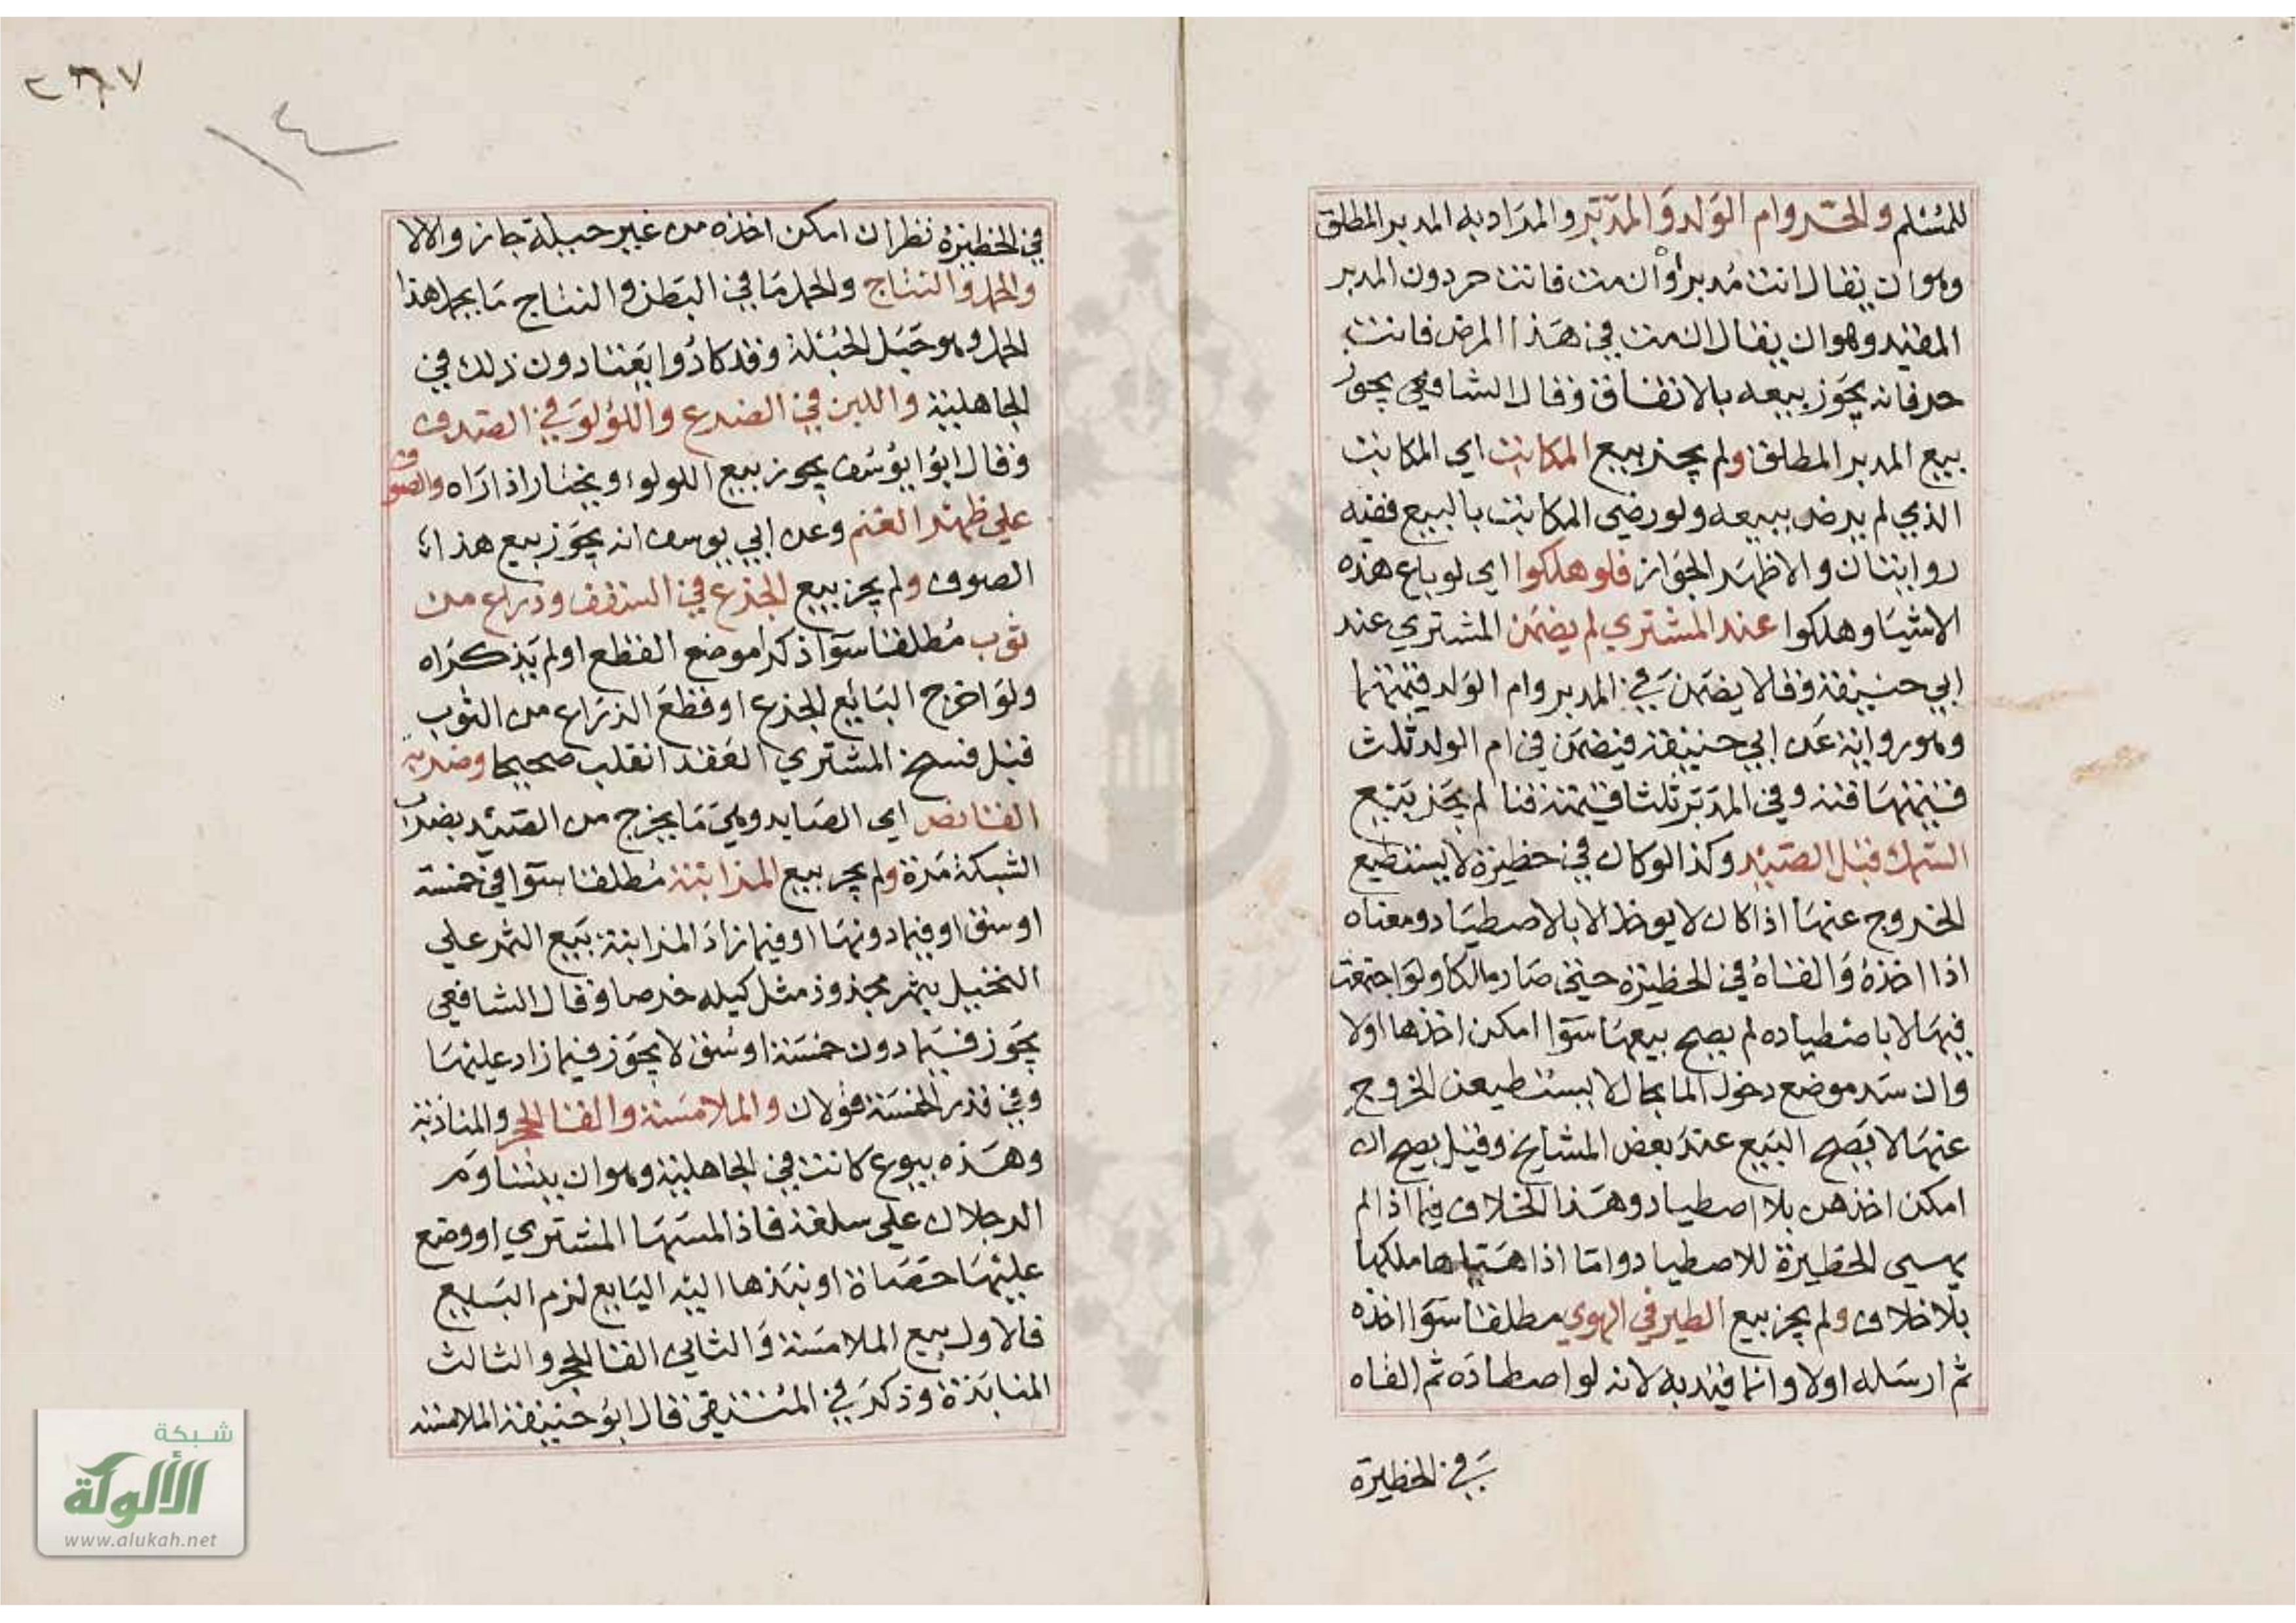 للمسلم والحر وام الولد والمدبر والمراد به المدبر المطلق
وهو ان يقال انت مدبر او ان مت فانت حر دون المدبر
المقيد وهو ان يقال ان مت في هذا المرض فانت
حر فانه يجوز بيعه بالاتفاق وقال الشافعي يجوز
بيع المدبر المطلق ولم يجز بيع المكاتب اي المكاتب
الذي لم يرض ببيعه ولو رضي المكاتب بالبيع ففيه
روايتان والاظهر الجواز فلو هلكوا اي لو باع هذه
الاشيا وهلكوا عند المشتري لم يضمن المشتري عند
ابي حنيفة وقالا يضمن في المدبر وام الولد قيمتهما
وهو رواية عن ابي حنيفة فيضمن في ام الولد ثلث
قيمتها قنة وفي المدبر ثلثا قيمته قنا لم يجز بيع
السمك قبل الصيد وكذا لو كان في حظيرة لا يستطيع
الخروج عنها اذا كان لا يوخذ الا بالاصطياد ومعناه
اذا اخذه والقاه في الحظيرة حيني صار مالكا ولو اجتمعت
فيها لا باصطياده لم يصح بيعها سوا امكن اخذها اولا
وان سد موضع دخول الما بحال لا يستطيعن الخروج
عنها لا يصح البيع عند بعض المشايخ وقيل يصح ان
امكن اخذهن بلا اصطياد وهذا الخلاف فيما اذا لم
يهيى الحظيرة للاصطياد واما اذا هياها ملكها
بلا خلاف ولم يجز بيع الطير في الهوي مطلقا سوا اخذه
ثم ارسله اولا وانما قيد به لانه لو اصطاده ثم القاه
في الحظيرة
٢٦٧
١٤
في الحظيرة نظر ان امكن اخذه من غير حيلة جاز والا لا
والحمل والنتاج والحمل ما في البطن والنتاج ما يحمل هذا
الحمل وهو حبل الحبلة وقد كادوا يعتادون ذلك في
الجاهلية واللبن في الضرع واللؤلؤ في الصدف
وقال ابو يوسف يجوز بيع اللولوء ويختار اذا راه والصوف
علي ظهر الغنم وعن ابي يوسف انه يجوز بيع هذا
الصوف ولم يجز بيع الجذع في السقف وذراع من
ثوب مطلقا سوا ذكرا موضع القطع او لم يذكراه
ولو اخرج البايع الجذع او قطع الذراع من الثوب
قبل فسخ المشتري العقد انقلب صحيحا وضربة
القانص اي الصايد وهي ما يخرج من الصيد بضرب
الشبكة مرة ولم يجز بيع المزابنة مطلقا سوا في خمسة
اوسق او فيما دونها او فيما زاد المزابنة بيع الثمر علي
النخيل بثمر مجذوذ مثل كيله خرصا وقال الشافعي
يجوز فيما دون خمسة اوسق لا يجوز فيما زاد عليها
وفي قدر الخمسة قولان والملامسة والقا الحجر والمنابذة
وهذه بيوع كانت في الجاهلية وهو ان يتساوم
الرجلان علي سلعة فاذا لمسها المشتري او وضع
عليها حصاة او نبذها اليه البايع لزم البيع
فالاول بيع الملامسة والثاني القا الحجر والثالث
المنابذة وذكر في المنتقي قال ابو حنيفة الملامسة
شبكة
الألوكة
www.alukah.net